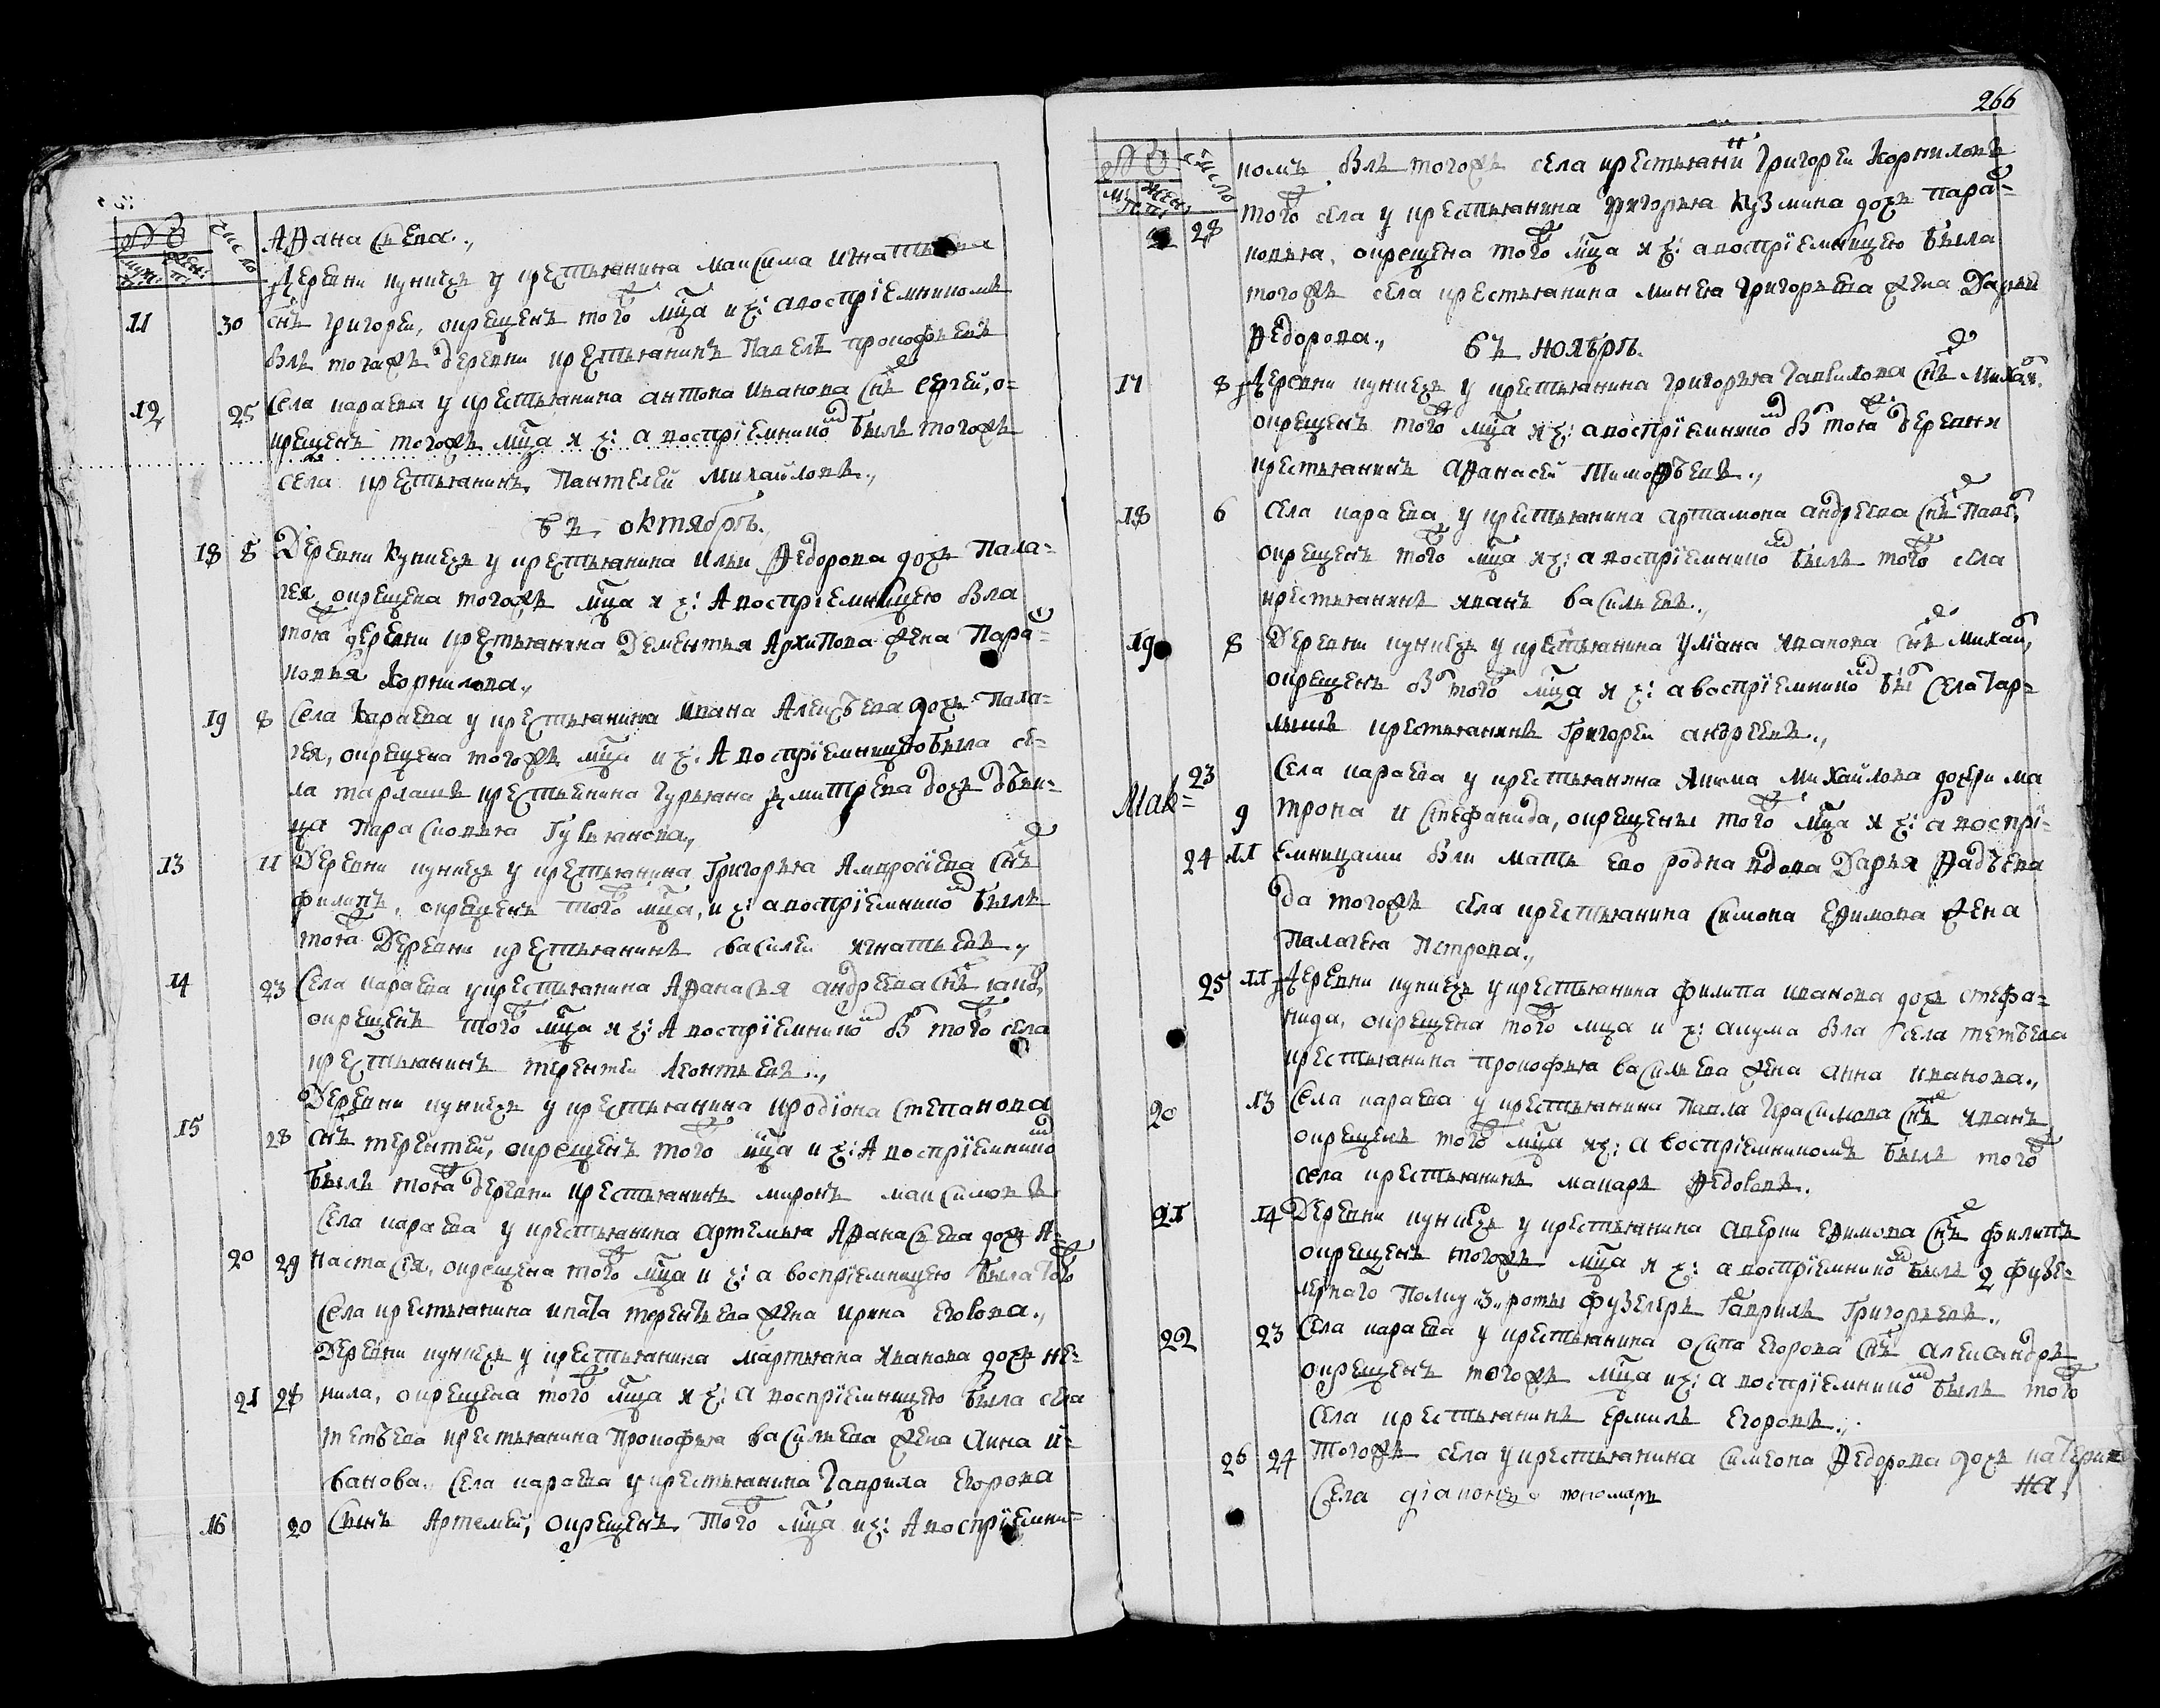 №
число
муж: жен:
Афанасьева.,
Деревни куниезъ у крестьянина максима игнатьева
11 30 снъ григореи, окрещенъ того мца и х: а востріемникомъ
былъ тогожъ деревни крестьянинъ Павелъ прокофьевъ
12 25 Села караева у крестьянина антона иванова снъ сергей, о-
крещенъ тогожъ мца и х: а востріемникомъ былъ тогожъ
села крестьянинъ Пантелей Михайловъ.,
въ октябрь.
18 8 Деревни куниезъ у крестьянина ильи Федорова дочъ Пала=
гея, окрещена тогожъ мца и х: А востріемницею была
тоя деревни крестьянина Дементья Архипова жена Пара=
ковья Корнилова.,
19 8 Села караева у крестьянина ивана Алексѣева дочъ Пала=
гея, окрещена тогожъ мца и х: А воспріемницею была се=
ла тарлашъ крестьянина Гурьяна дмитрева дочъ дѣви=
ца Парасковья Гурьянова.,
13 11 Деревни куниезъ у крестьянина Григорья Амвросіева снъ
филипъ, окрещенъ того мца, и х: а востріемникомъ былъ
тоя Деревни крестьянинъ василеи игнатьевъ.,
14 23 Села караева у крестьянина Афанасья андреева снъ іаков,
окрещенъ того мца и х: А воспріемникомъ был того села
крестьянинъ терентеи леонтьевъ.,
Деревни куниезъ у крестьянина иродіона степанова
15 28 снъ терентей, окрещенъ того мца и х: А воспріемникомъ
былъ тоя деревни крестьянинъ миронъ максимовъ
Села караева у крестьянина артемья Афанасьева дочъ А=
20 29 настасія, окрещена того мца и х: а воспріемницею была того
села крестьянина ипата терентьева жена ирина Егорова.,
Деревни куниезъ у крестьянина мартьяна иванова дочъ не=
21 28 нила, окрещена того мца и х: а воспріемницею была села
тетѣева крестьянина Прокофья васильева жена Анна и=
ванова. Села караева у крестьянина Гаврила Егорова
16 20 Сынъ Артемей, окрещенъ того мца и х: А воспріемни=
266
№
число
муж: жен:
комъ былъ тогожъ села крестьянинъ Григореи Корниловъ
28 того села у крестьянина григорья кузмина дочъ пара=
ковья, окрещена того мца и х: а воспріемницею была
тогожъ села крестьянина минея григорьева жена Дарья
Федорова., въ ноябрь.
17 8 Деревни куниезъ у крестьянина григорья гаврилова снъ михаил
окрещенъ того мца и х: а воспріемникомъ был тоя деревни
крестьянинъ Афанасеи Тимофѣевъ.,
18 6 Села караева у крестьянина артамона андреева снъ Павел,
окрещенъ того мца и х: а воспріемникомъ былъ того села
крестьянинъ иванъ васильевъ.,
19 8 Деревни куниезъ у крестьянина Уліана иванова снъ михаил,
окрещенъ был того мца и х: а воспріемникомъ был села тар=
лышъ крестьянинъ Григореи андреевъ.,
23 Села караева у крестьянина Якима Михайлова дочери ма
Мак= 9 трона и Стефанида, окрещены того мца и х: а воспрі=
24 11 емницами были мать ево родна вдова Дарья Фадѣева
да тогожъ села крестьянина Симона Ефимова жена
Палагея Петрова.,
25 11 Деревни куниезъ у крестьянина филипа иванова дочъ стефа=
нида, окрещена того мца и х: а кума была села тетѣева
крестьянина прокофья васильева жена анна иванова.,
20 13 Села караева у крестьянина Павла Герасимова снъ иванъ
окрещенъ того мца и х: а воспріемникомъ былъ того
села крестьянинъ макаръ Федоровъ.
21 14 Деревни куниезъ у крестьянина аверки Ефимова снъ филипъ
окрещенъ тогожъ мца и х: а воспріемникомъ былъ 2 фузе=
лернаго Полку 3. роты фузелеръ Гаврилъ Григорьевъ.,
22 23 Села караева у крестьянина осипа Егорова снъ александръ
окрещенъ тогожъ мца и х: а воспріемникомъ былъ того
села крестьянинъ ермилъ Егоровъ.,
26 24 Тогожъ села у крестьянина Симеона Федорова дочъ катери
на,
Села діаконъ пономарь